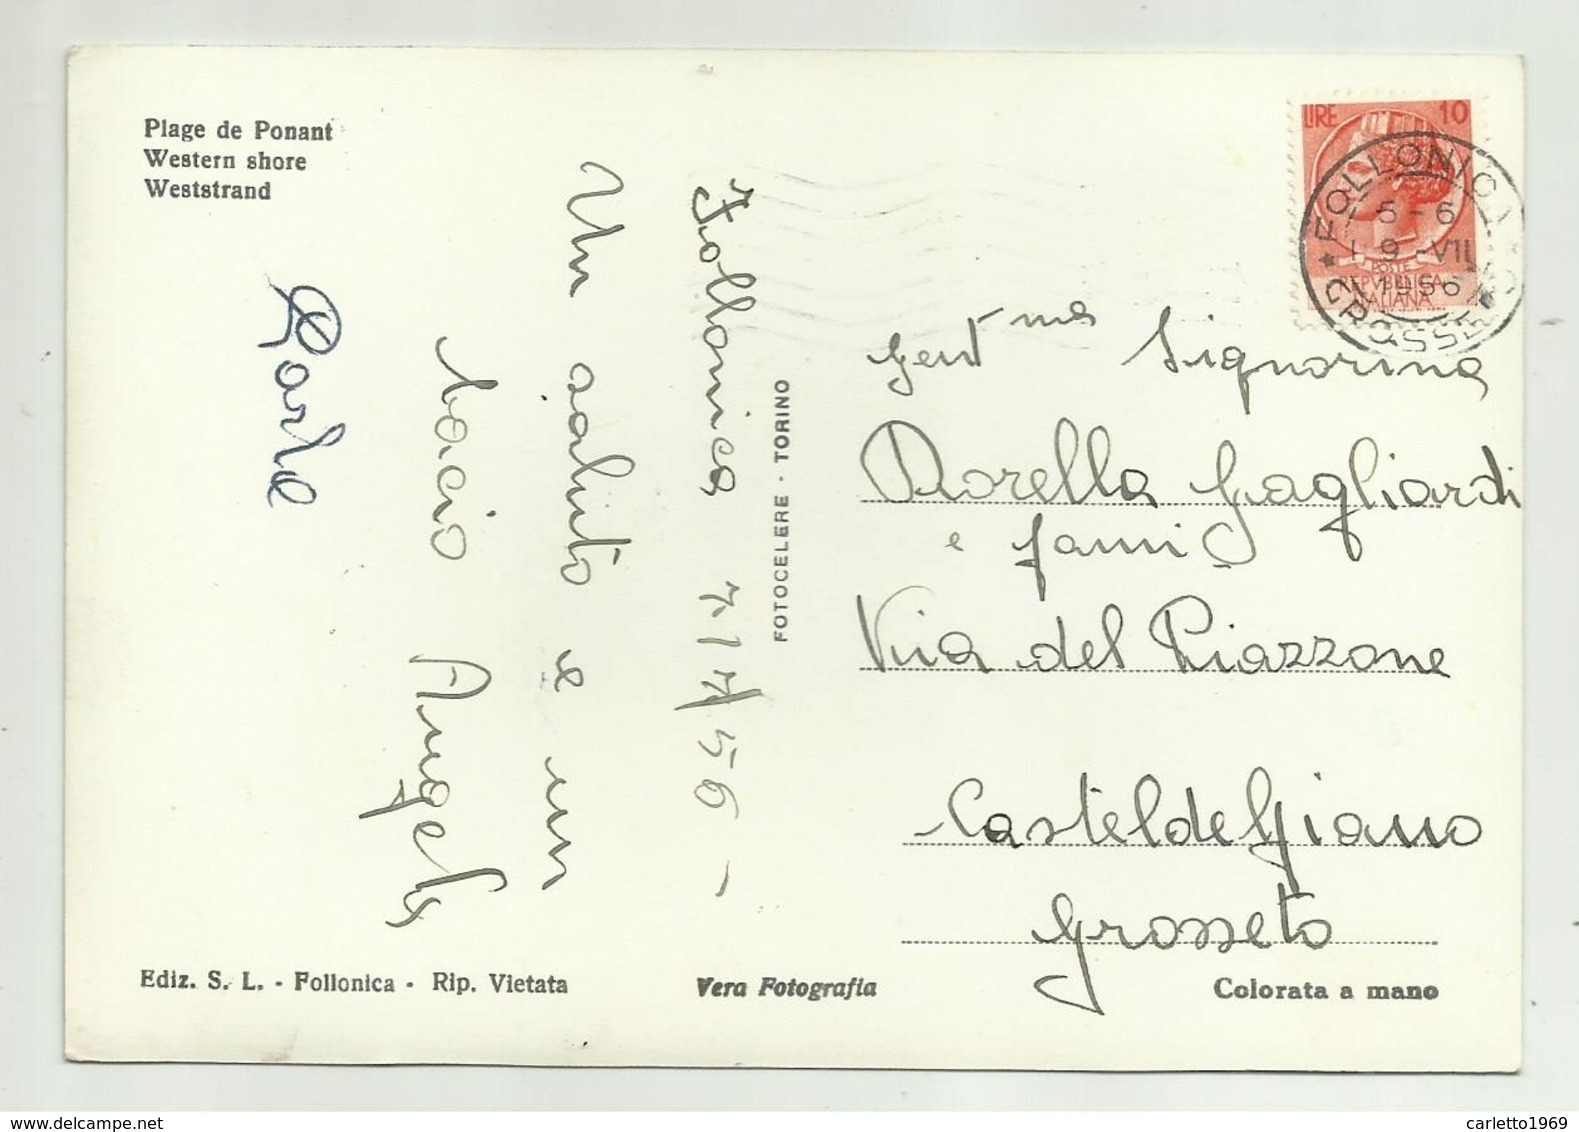 Plage de Ponant
Western shore
Weststrand
Follonica 7/7/56 -
Un saluto e un
bacio Angela
Carlo
FOTOCELERE - TORINO
LIRE 10
POSTE
REPVBBLICA
ITALIANA
FOLLONICA
GROSSETO
5-6
9-VII
1956
Gent ma Signorina
Dorella Gagliardi
e fami
Via del Piazzone
Casteldelpiano
Grosseto
Ediz. S. L. - Follonica - Rip. Vietata
Vera Fotografia
Colorata a mano
carletto1969